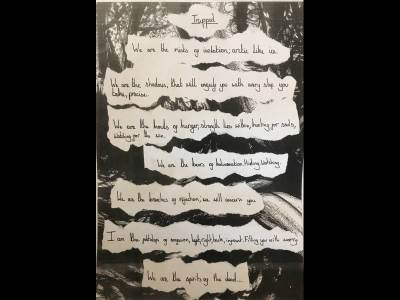 Trapped
We are the roots of isolation; arctic like us.
We are the shadows, that will engulf you with every step you
take, precise.
We are the hands of hunger, strength lies within, hunting for souls,
for the
We are the of hallucination. Hiding. Watching.
We are the branches of rejection; we will you
I am the of left, right, back, Filling you with worry
We are the spirits of the dead...